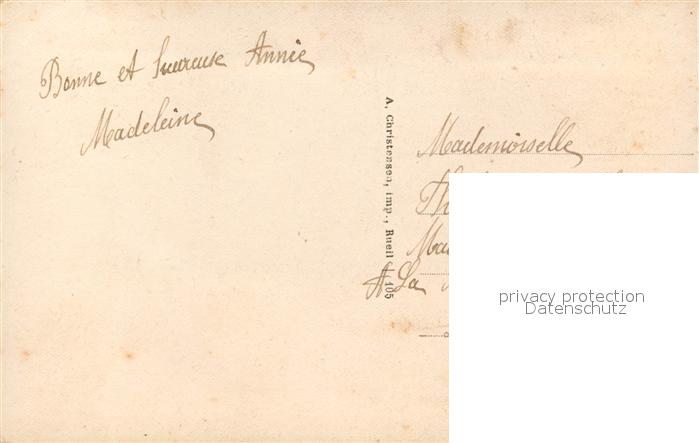 Bonne et heureuse Année
Madeleine
A. Christensen, imp., Rueil 105
Mademoiselle
A La
privacy protection
Datenschutz